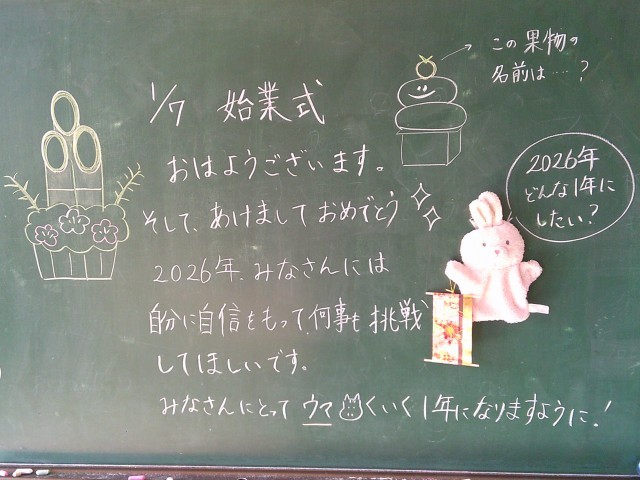 1/7 始業式
この果物の
名前は…?
おはようございます。
そして、あけましておめでとう
2026年、みなさんには
自分に自信をもって、何事も挑戦
してほしいです。
みなさんにとって ウマくいく1年になりますように!
2026年
どんな1年に
したい?